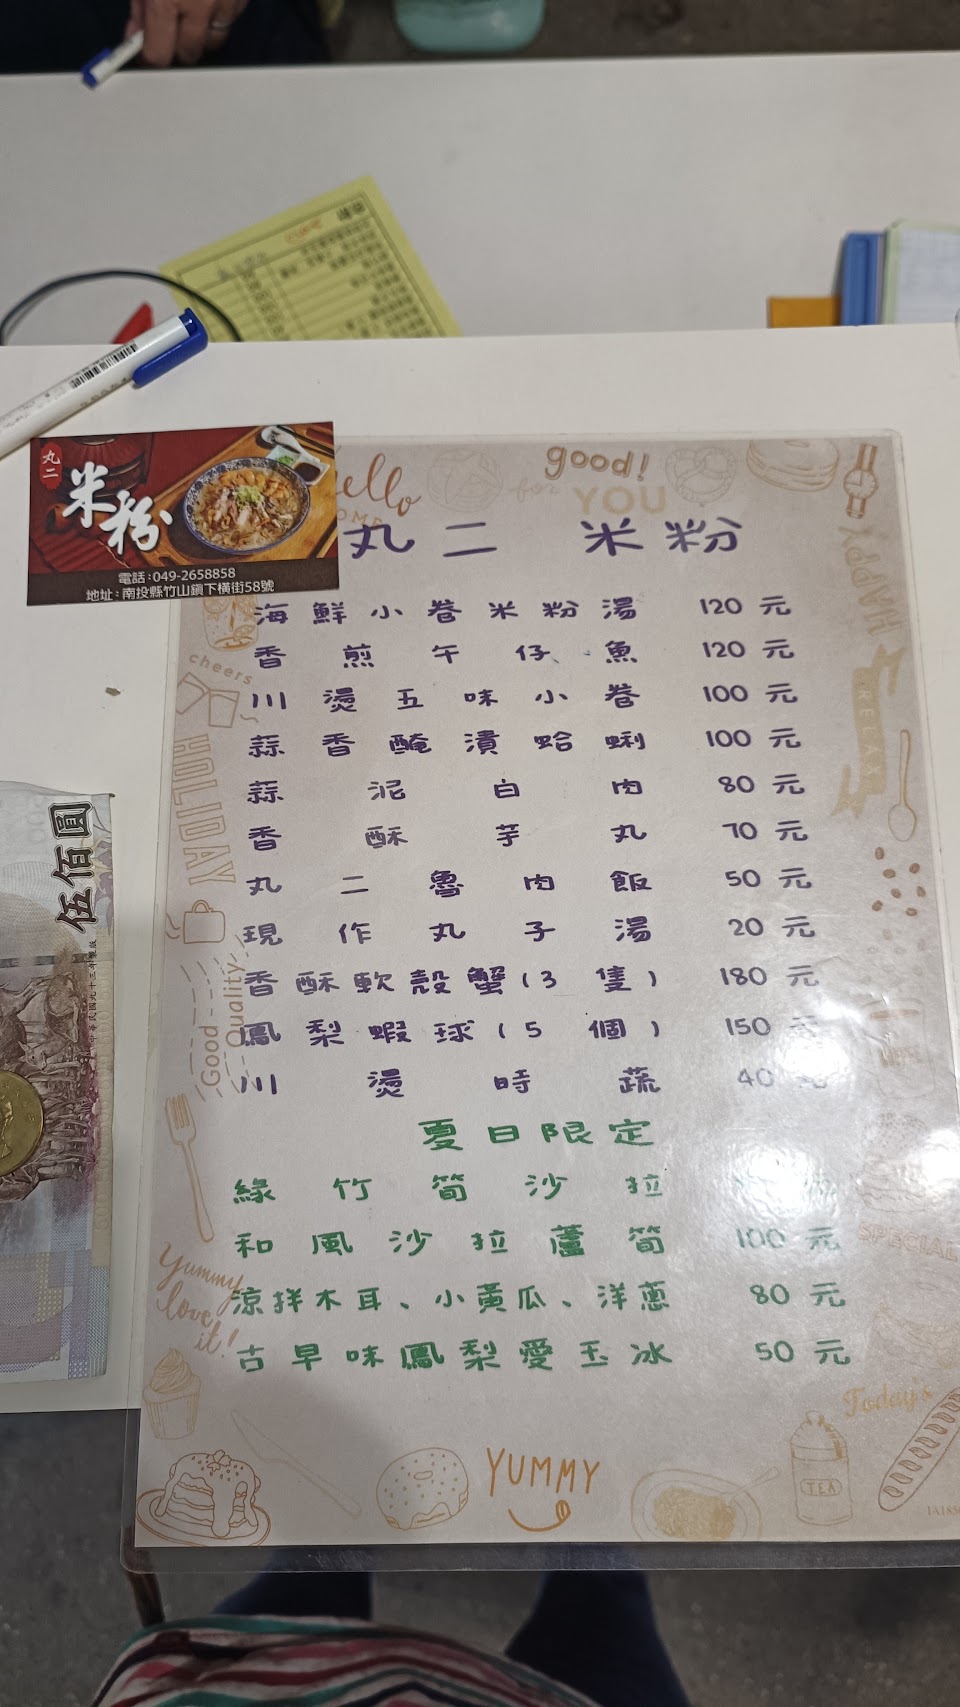 丸二
米粉
電話:049-2658858
地址:南投縣竹山鎮下橫街58號
Hello
good!
for
YOU
HAPPY
丸二 米粉
海鮮小卷米粉湯 120元
香煎午仔魚 120元
川燙五味小卷 100元
蒜香醃漬蛤蜊 100元
蒜泥白肉 80元
香酥芋丸 70元
丸二魯肉飯 50元
現作丸子湯 20元
香酥軟殼蟹(3隻) 180元
鳳梨蝦球(5個) 150元
川燙時蔬 40元
夏日限定
綠竹筍沙拉
和風沙拉蘆筍 100元
涼拌木耳、小黃瓜、洋蔥 80元
古早味鳳梨愛玉冰 50元
cheers
HOLIDAY
RELAX
Good Quality
Yummy
love
it!
SPECIAL
Today's
YUMMY
TEA
伍佰圓